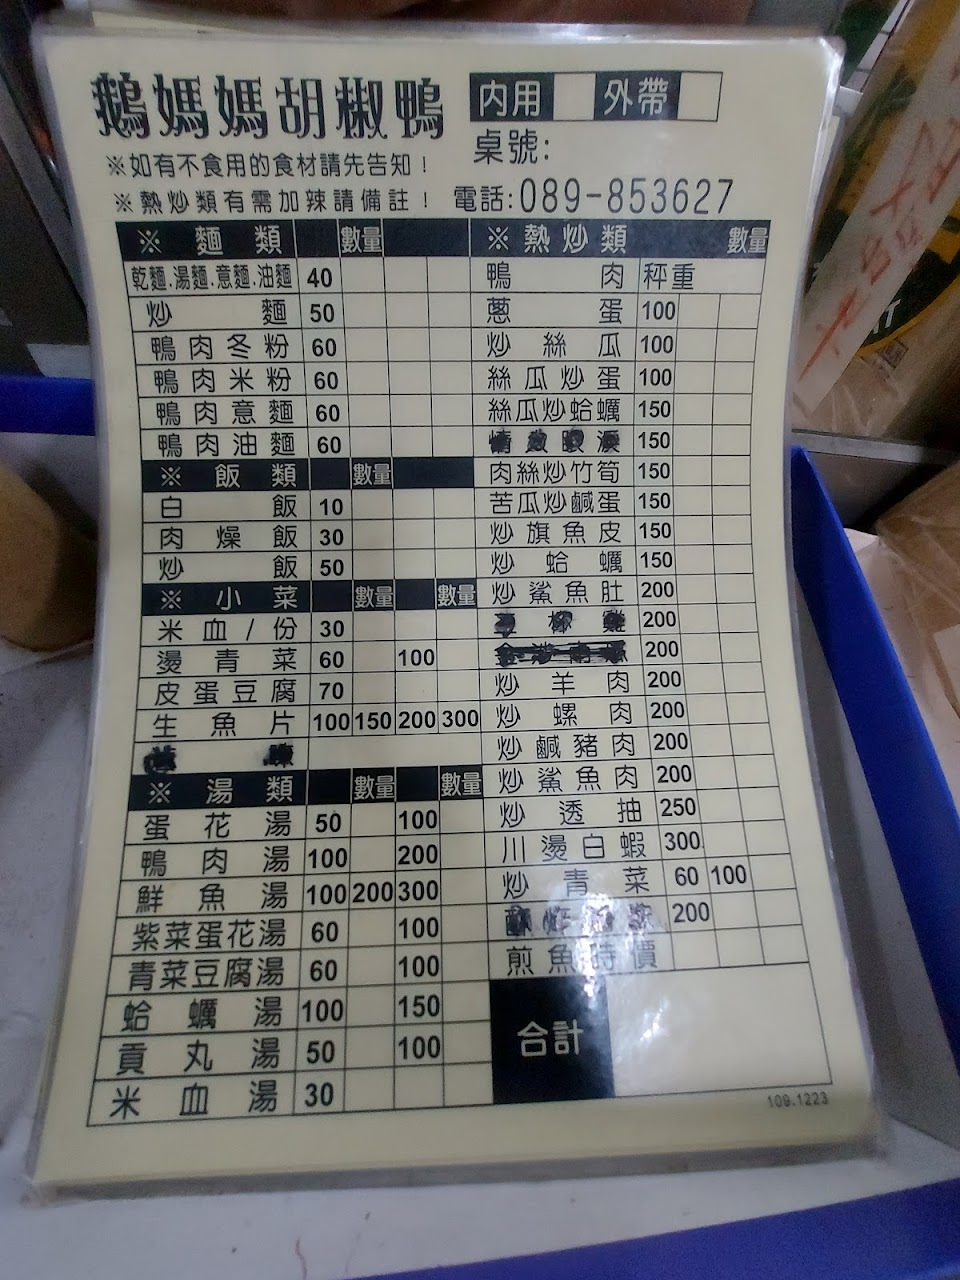 鵝媽媽胡椒鴨
內用 外帶
桌號:
※如有不食用的食材請先告知！
※熱炒類有需加辣請備註！ 電話:089-853627
※ 麵類 數量
乾麵.湯麵.意麵.油麵 40
炒麵 50
鴨肉冬粉 60
鴨肉米粉 60
鴨肉意麵 60
鴨肉油麵 60
※ 飯類 數量
白飯 10
肉燥飯 30
炒飯 50
※ 小菜 數量 數量
米血/份 30
燙青菜 60 100
皮蛋豆腐 70
生魚片 100 150 200 300
※ 湯類 數量 數量
蛋花湯 50 100
鴨肉湯 100 200
鮮魚湯 100 200 300
紫菜蛋花湯 60 100
青菜豆腐湯 60 100
蛤蠣湯 100 150
貢丸湯 50 100
米血湯 30
※ 熱炒類 數量
鴨肉 秤重
蔥蛋 100
炒絲瓜 100
絲瓜炒蛋 100
絲瓜炒蛤蠣 150
150
肉絲炒竹筍 150
苦瓜炒鹹蛋 150
炒旗魚皮 150
炒蛤蠣 150
炒鯊魚肚 200
200
200
炒羊肉 200
炒螺肉 200
炒鹹豬肉 200
炒鯊魚肉 200
炒透抽 250
川燙白蝦 300
炒青菜 60 100
200
煎魚時價
合計
109.1223